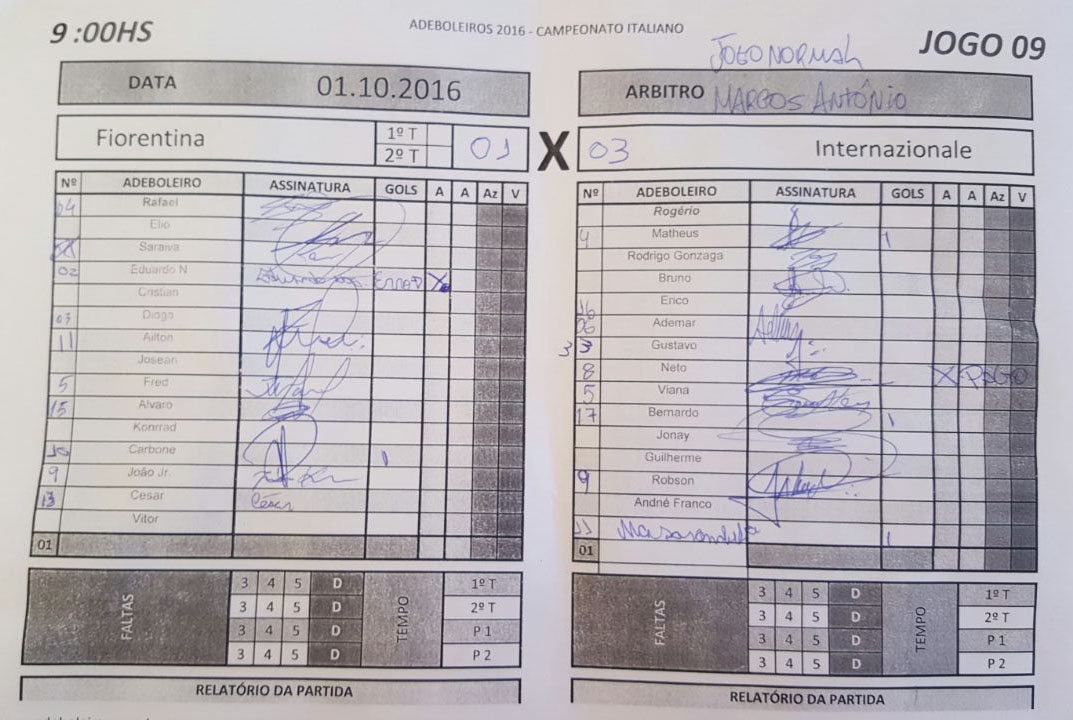 ADEBOLEIROS 2016 - CAMPEONATO ITALIANO
9 :00HS
JOGO NORMAL
JOGO 09
DATA 01.10.2016
ARBITRO MARCOS ANTÔNIO
Fiorentina 1º T 2º T 01 X 03 Internazionale
Nº ADEBOLEIRO ASSINATURA GOLS A A Az V
04 Rafael
Elio
Saraiva
02 Eduardo N ERRADO X
Cristian
03 Diogo
11 Ailton
Josean
5 Fred
15 Alvaro
Konrrad
10 Carbone 1
9 João Jr.
13 Cesar César
Vitor
01
Nº ADEBOLEIRO ASSINATURA GOLS A A Az V
Rogério
4 Matheus 1
Rodrigo Gonzaga
Bruno
16 Erico
06 Ademar
3 3 Gustavo
8 Neto X PAGO
5 Viana
17 Bernardo 1
Jonay
Guilherme
9 Robson
André Franco
11 1
01
FALTAS 3 4 5 D TEMPO 1º T
3 4 5 D 2º T
3 4 5 D P 1
3 4 5 D P 2
FALTAS 3 4 5 D TEMPO 1º T
3 4 5 D 2º T
3 4 5 D P 1
3 4 5 D P 2
RELATÓRIO DA PARTIDA
RELATÓRIO DA PARTIDA